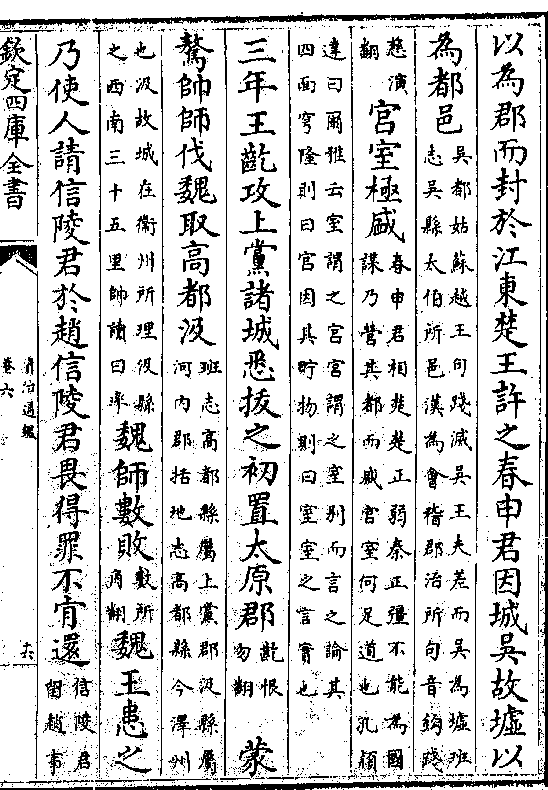 以為郡而封於江東楚王許之春申君因城吳故墟以
為都邑
吳都姑蘇越王句踐滅吳王夫差而吳為墟班
志吳縣太伯所邑漢為會稽郡治所句音鉤踐
慈演
翻
宮室極盛
春申君相楚楚正弱秦正彊不能為國
謀乃營其都而盛宮室何足道也孔穎
達曰爾雅云室謂之宮宮謂之室别而言之論其
四面穹隆則曰宮因其貯物則曰室室之言實也
三年王齕攻上黨諸城悉拔之初置太原郡
齕恨
勿翻
蒙
驁帥師伐魏取高都汲
班志高都縣屬上黨郡汲縣屬
河内郡括地志高都縣今澤州
也汲故城在衛州所理汲縣
之西南三十五里帥讀曰率
魏師數敗
數所
角翻
魏王患之
乃使人請信陵君於趙信陵君畏得罪不肯還
信陵君
留趙事
欽定四庫全書
資治通鑑
卷六